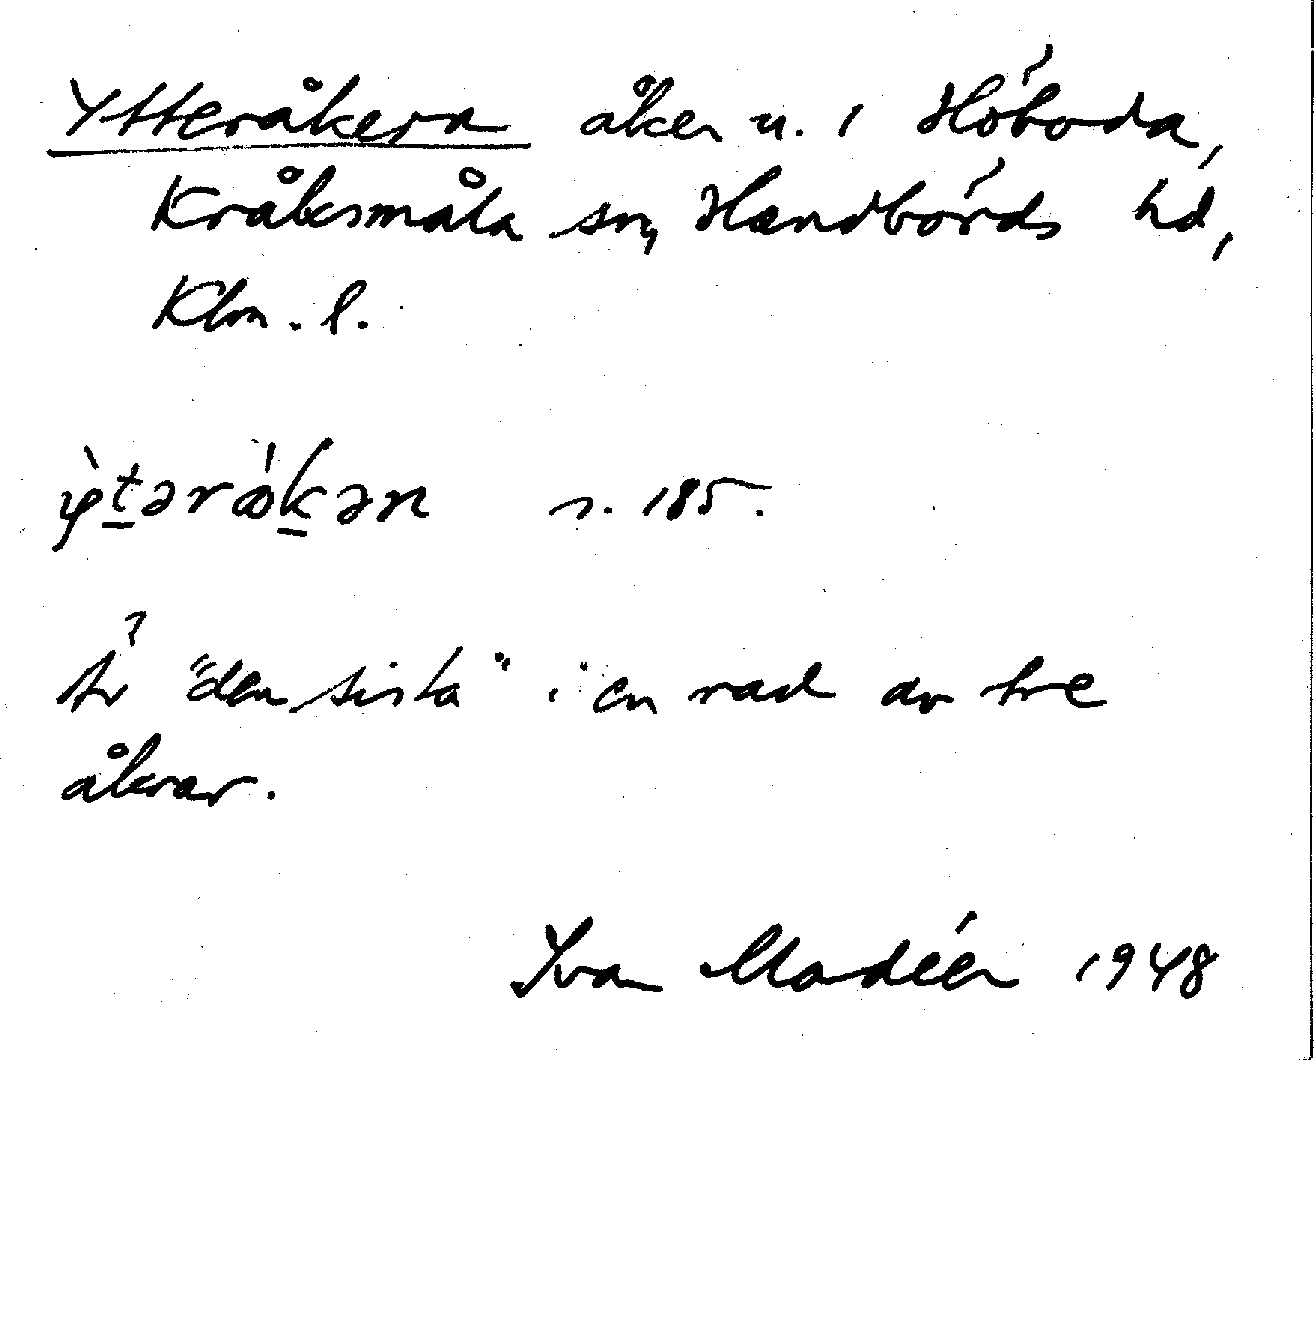 Ytteråkern åker n. 1 Höboda,
Kråksmåla sn, Handbörds hd,
Klm. l.
s. 185.
Är "den sista" i en rad av tre
åkrar.
Ivan Modéer 1948